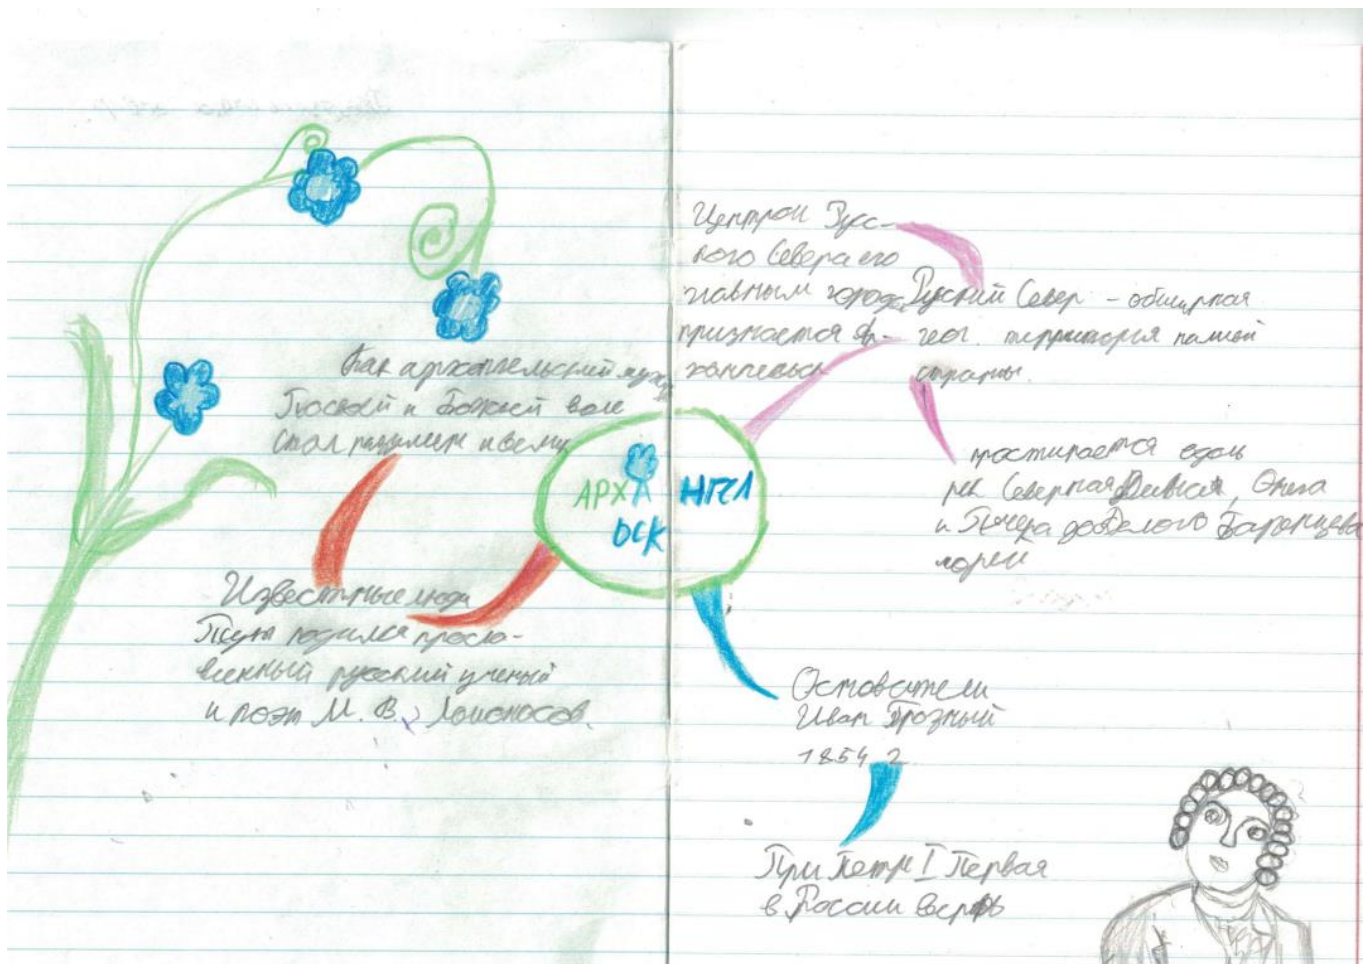 Как архангельский мужик
Своей и Божьей воле
стал разумен и велик
АРХА НГЕЛ
ЬСК
Известные люди
Туда родился просла-
вленный русский ученый
и поэт М. В. Ломоносов.
Центром Русс-
кого Севера его
главным города
признается Ар-
хангельск
Русский Север - обширная
геог. территория нашей
страны.
простирается вдоль
рек Северная Двина, Онега
и Печора до Белого Баренцева
морей
Основатели
Иван Грозный
1854 г
При Петре I Первая
в России верфь